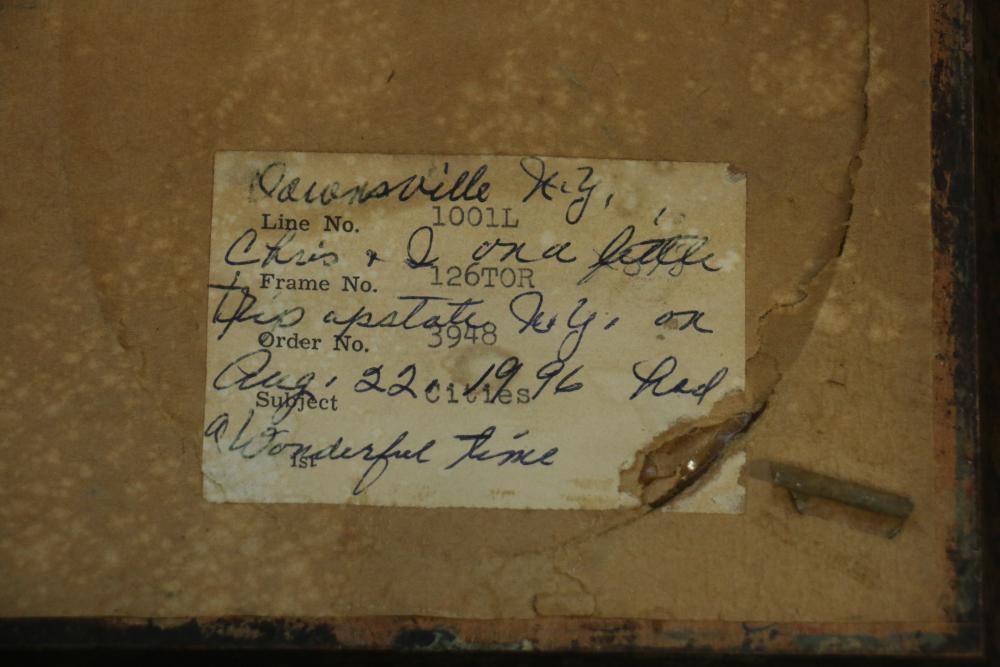 Downsville N.Y.
Line No. 1001L
Chris & I on a little
Frame No. 126TOR
trip upstate N.Y. on
Order No. 3948
Aug. 22, 1996 had
Subject Cities
a Wonderful time
1st